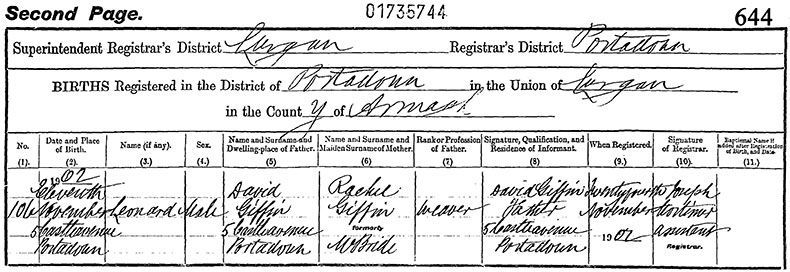 Second Page. 01735744 644
Superintendent Registrar's District Lurgan Registrar's District Portadown
BIRTHS Registered in the District of Portadown in the Union of Lurgan
in the County of Armagh
No. Date and Place of Birth. Name (if any). Sex. Name and Surname and Dwelling-place of Father. Name and Surname and Maiden Surname of Mother. Rank or Profession of Father. Signature, Qualification, and Residence of Informant. When Registered. Signature of Registrar. Baptismal Name if added after Registration of Birth, and Date.
(1). (2). (3). (4). (5). (6). (7). (8). (9). (10). (11).
1902
Eleventh David Rachel David Giffin Joseph
106 November Leonard Male Giffin Giffin Weaver Father November Mortimer
5 Castleavenue 5 Castleavenue formerly 5 Castleavenue 1902 assistant
Portadown Portadown McBride Portadown Registrar.